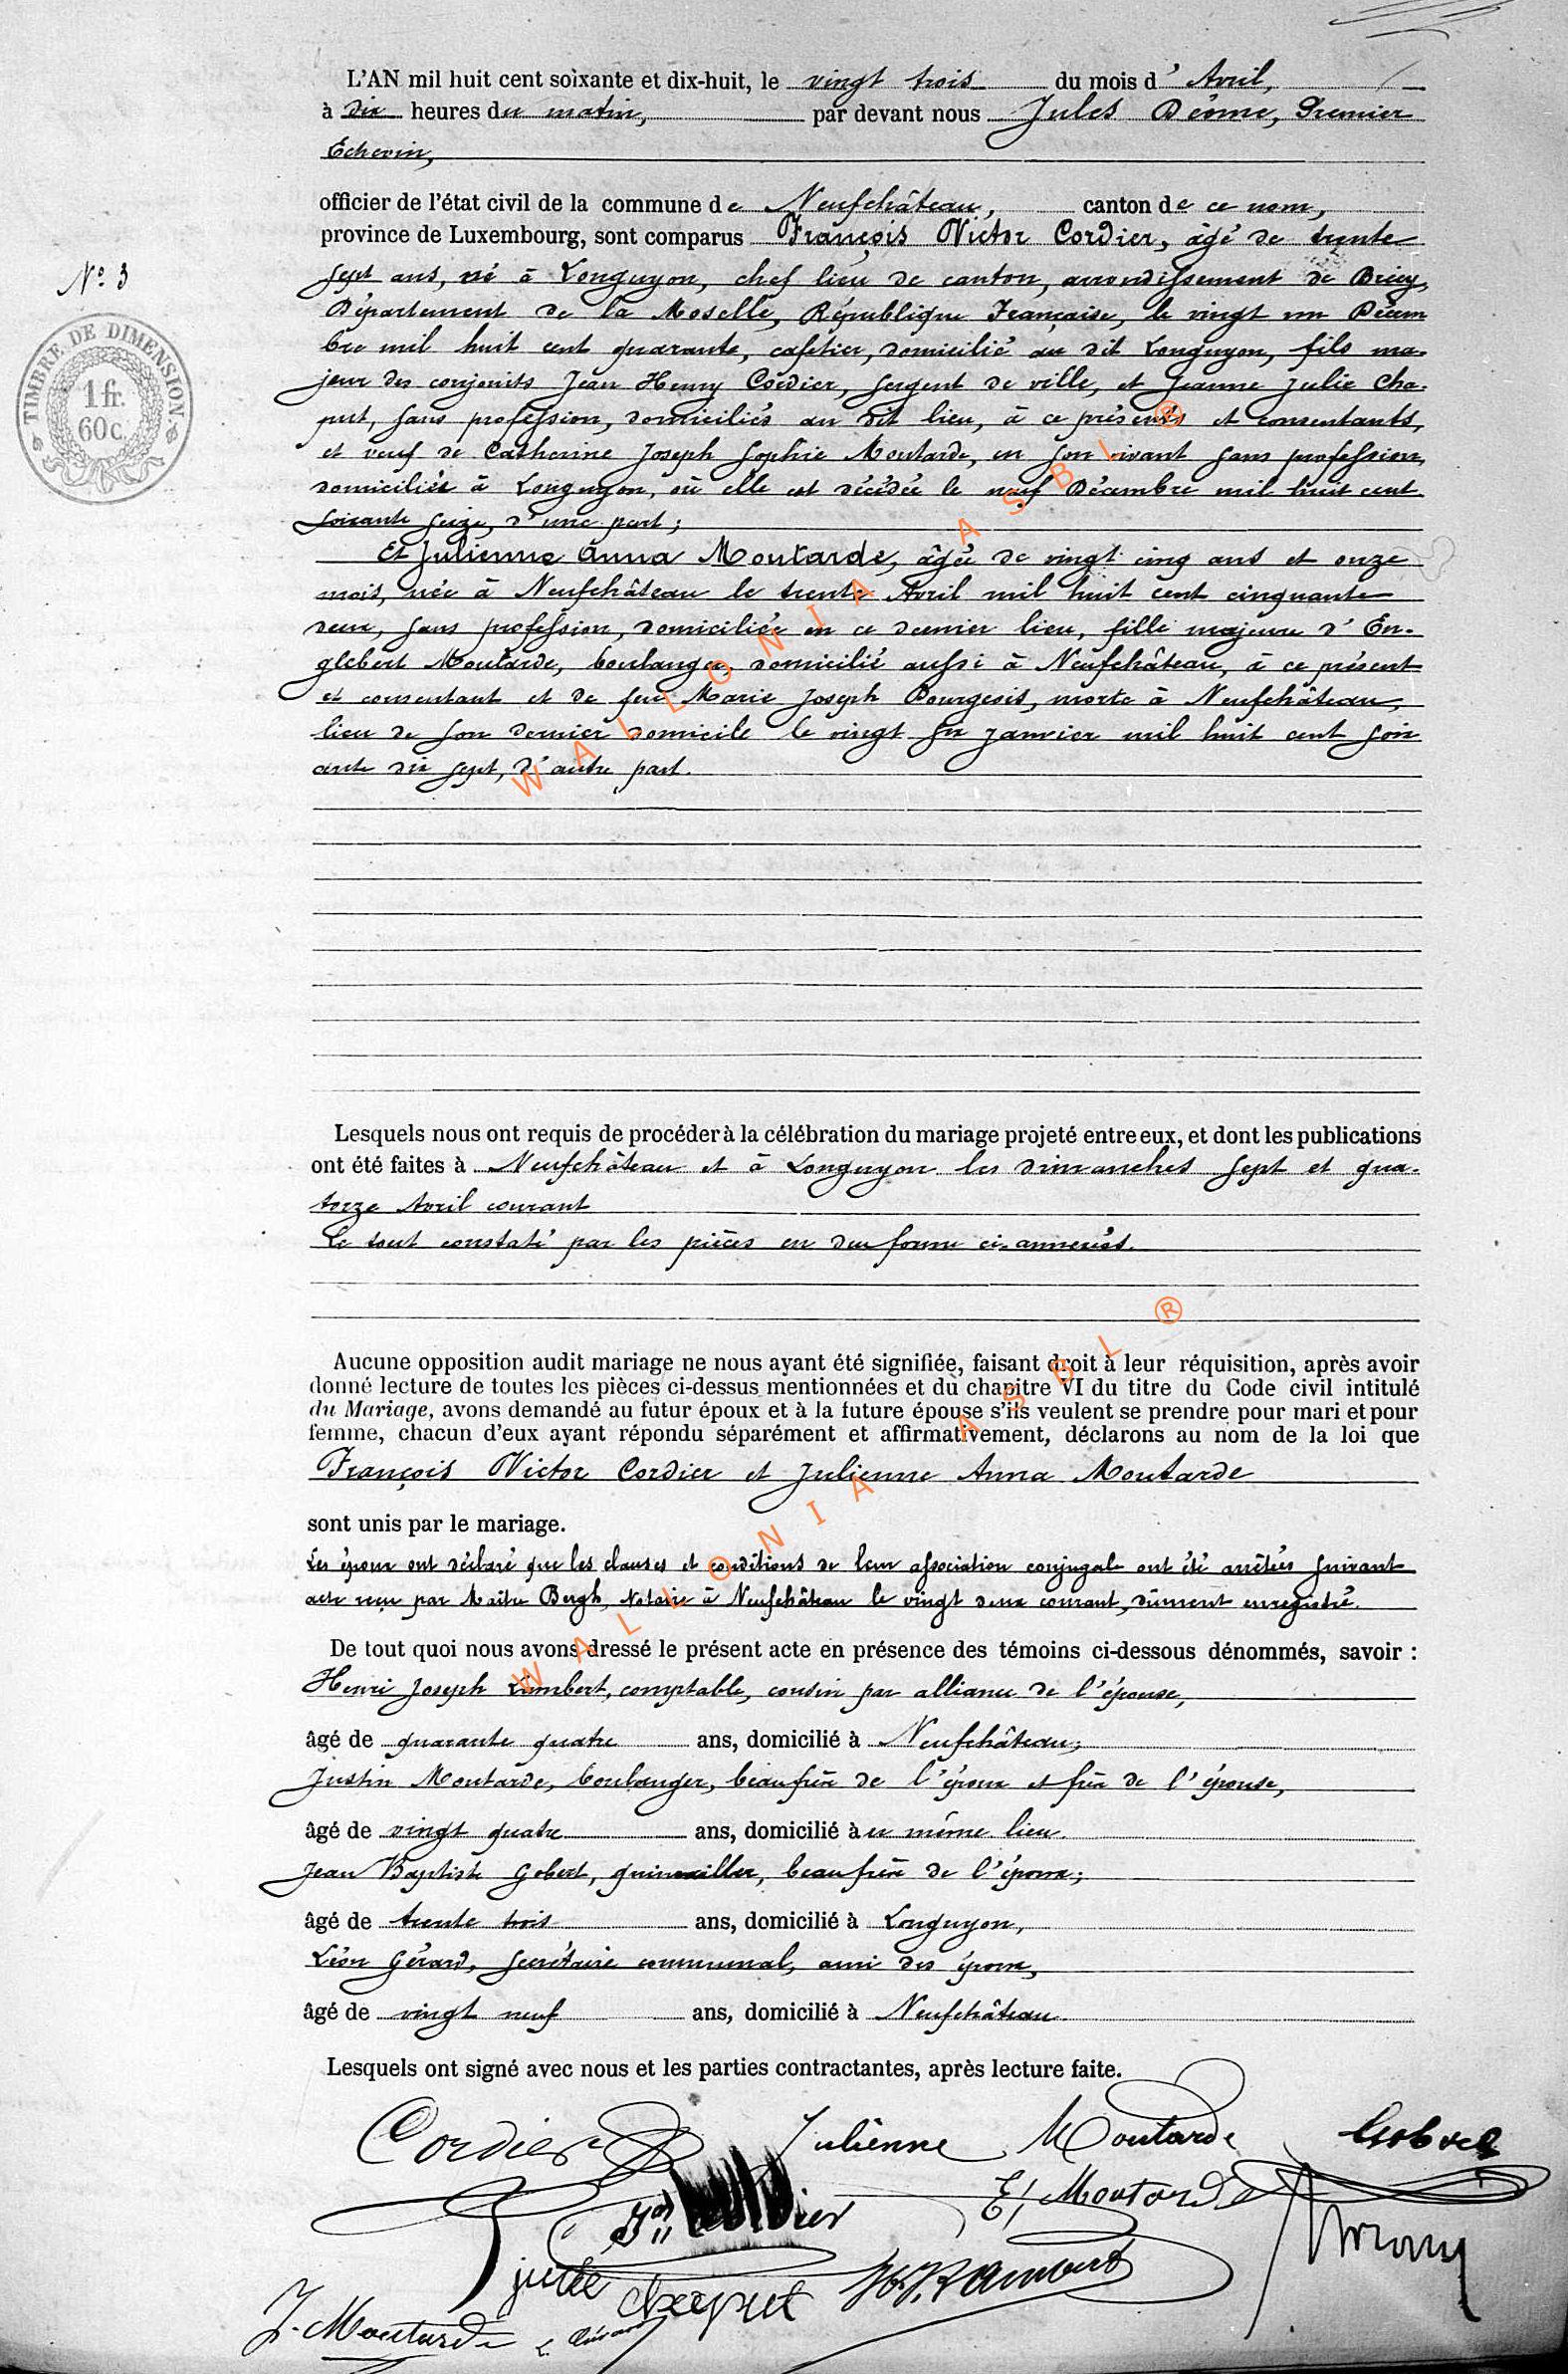 L'AN mil huit cent soixante et dix-huit, le vingt trois du mois d' Avril,
à dix heures du matin, par devant nous Jules Déome, Premier
Echevin,
officier de l'état civil de la commune de Neufchâteau, canton de ce nom,
province de Luxembourg, sont comparus François Victor Cordier, âgé de trente
sept ans, né à Longuyon, chef lieu de canton, arrondissement de Briey,
Département de la Moselle, République Française, le vingt un Décem
bre mil huit cent quarante, cafetier, domicilié au dit Longuyon, fils ma-
jeur des conjoints Jean Henry Cordier, sergent de ville, et Jeanne Julie Cha-
put, sans profession, domiciliés au dit lieu, à ce présents et consentants,
et veuf de Catherine Joseph Sophie Moutarde, en son vivant sans profession,
domiciliée à Longuyon, où elle est décédée le neuf Décembre mil huit cent
soixante seize, d'une part;
Et Julienne Anna Moutarde, âgée de vingt cinq ans et onze
mois, née à Neufchâteau le trente Avril mil huit cent cinquante
deux, sans profession, domiciliée en ce dernier lieu, fille majeure d' En-
glebert Moutarde, boulanger, domicilié aussi à Neufchâteau, à ce présent
et consentant et de feue Marie Joseph Bourgeois, morte à Neufchâteau,
lieu de son dernier domicile le vingt six Janvier mil huit cent soix
ante dix sept, d'autre part.
Nº 3
TIMBRE DE DIMENSION
1 fr.
60 c.
Lesquels nous ont requis de procéder à la célébration du mariage projeté entre eux, et dont les publications
ont été faites à Neufchâteau et à Longuyon les dimanches sept et qua-
torze Avril courant
Le tout constaté par les pièces en due forme ci-annexées.
Aucune opposition audit mariage ne nous ayant été signifiée, faisant droit à leur réquisition, après avoir
donné lecture de toutes les pièces ci-dessus mentionnées et du chapitre VI du titre du Code civil intitulé
du Mariage, avons demandé au futur époux et à la future épouse s'ils veulent se prendre pour mari et pour
femme, chacun d'eux ayant répondu séparément et affirmativement, déclarons au nom de la loi que
François Victor Cordier et Julienne Anna Moutarde
sont unis par le mariage.
Les époux ont déclaré que les clauses et conditions de leur association conjugale ont été arrêtées suivant
acte reçu par Maître Bergh, Notaire à Neufchâteau le vingt deux courant, dûment enregistré.
De tout quoi nous avons dressé le présent acte en présence des témoins ci-dessous dénommés, savoir :
Henri Joseph Lambert, comptable, cousin par alliance de l'épouse,
âgé de quarante quatre ans, domicilié à Neufchâteau;
Justin Moutarde, boulanger, beau frère de l'époux et frère de l'épouse,
âgé de vingt quatre ans, domicilié à ce même lieu.
Jean Baptiste Gobert, quincailler, beau frère de l'époux;
âgé de trente trois ans, domicilié à Longuyon,
Léon Gérard, secrétaire communal, ami des époux,
âgé de vingt neuf ans, domicilié à Neufchâteau.
Lesquels ont signé avec nous et les parties contractantes, après lecture faite.
Cordier Julienne Moutarde
E/ Moutarde
julie chaput H. J. Lambert
J. Moutarde L. Gérard
WALLONIA ASBL ®
WALLONIA ASBL ®